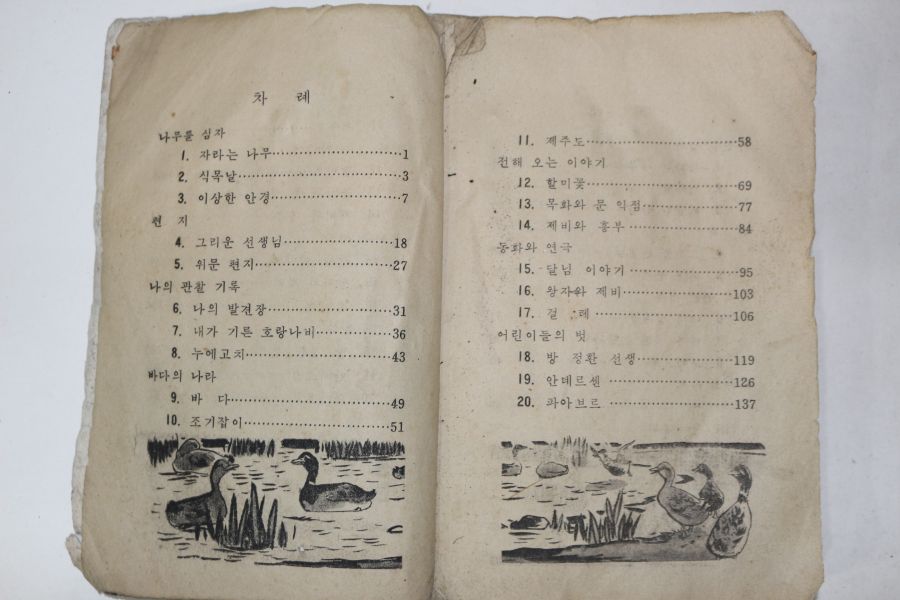 차 례
나무를 심자
1. 자라는 나무 1
2. 식목날 3
3. 이상한 안경 7
편 지
4. 그리운 선생님 18
5. 위문 편지 27
나의 관찰 기록
6. 나의 발견장 31
7. 내가 기른 호랑나비 36
8. 누에고치 43
바다의 나라
9. 바 다 49
10. 조기잡이 51
11. 제주도 58
전해 오는 이야기
12. 할미꽃 69
13. 목화와 문 익점 77
14. 제비와 흥부 84
동화와 연극
15. 달님 이야기 95
16. 왕자와 제비 103
17. 걸 레 106
어린이들의 벗
18. 방 정환 선생 119
19. 안데르센 126
20. 파아브르 137